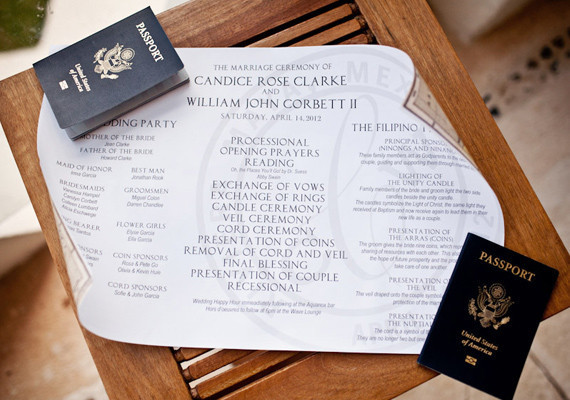 PASSPORT
United States
of America
THE MARRIAGE CEREMONY OF
CANDICE ROSE CLARKE
AND
WILLIAM JOHN CORBETT II
SATURDAY, APRIL 14, 2012
WEDDING PARTY
MOTHER OF THE BRIDE
Jean Clarke
FATHER OF THE BRIDE
Howard Clarke
MAID OF HONOR
Anna Garcia
BEST MAN
Jonathan Rook
BRIDESMAIDS
Vanessa Hampel
Carolyn Corbett
Colleen Lombard
GROOMSMEN
Miguel Colon
Darren Chandisa
RING BEARER
FLOWER GIRLS
Elyse Garcia
Ella Garcia
COIN SPONSORS
Rizua & Pete Go
Olivia & Kevin Hsia
CORD SPONSORS
Sofie & John Garcia
PROCESSIONAL
OPENING PRAYERS
READING
Oh, the Places You'll Go! by Dr. Suess
Abby Swain
EXCHANGE OF VOWS
EXCHANGE OF RINGS
CANDLE CEREMONY
VEIL CEREMONY
CORD CEREMONY
PRESENTATION OF COINS
REMOVAL OF CORD AND VEIL
FINAL BLESSING
PRESENTATION OF COUPLE
RECESSIONAL
Wedding Happy Hour immediately following at the Aguarea bar
Hors d'oeuvres to follow at 6pm at the Wave Lounge
THE FILIPINO
PRINCIPAL SPONSORS
(NINONGS AND NINANGS)
These family members act as Godparents to the
couple, guiding and supporting them through
LIGHTING OF
THE UNITY CANDLE
Family members of the bride and groom light the two side
candles beside the unity candle.
The candles symbolize the Light of Christ, the same light they
received at Baptism and now receive again to lead them in their
new life as a couple.
PRESENTATION OF
THE ARRAS (COINS)
The groom gives the bride nine coins, which
sharing of resources with each other. This
the hope of future prosperity and the
take care of one another.
PRESENTATION OF
THE VEIL
The veil draped onto the couple symbolizes
protection of the
PRESENTATION OF
THE NUPTIAL
The cord is a symbol of
They are no longer two but
PASSPORT
United States
of America